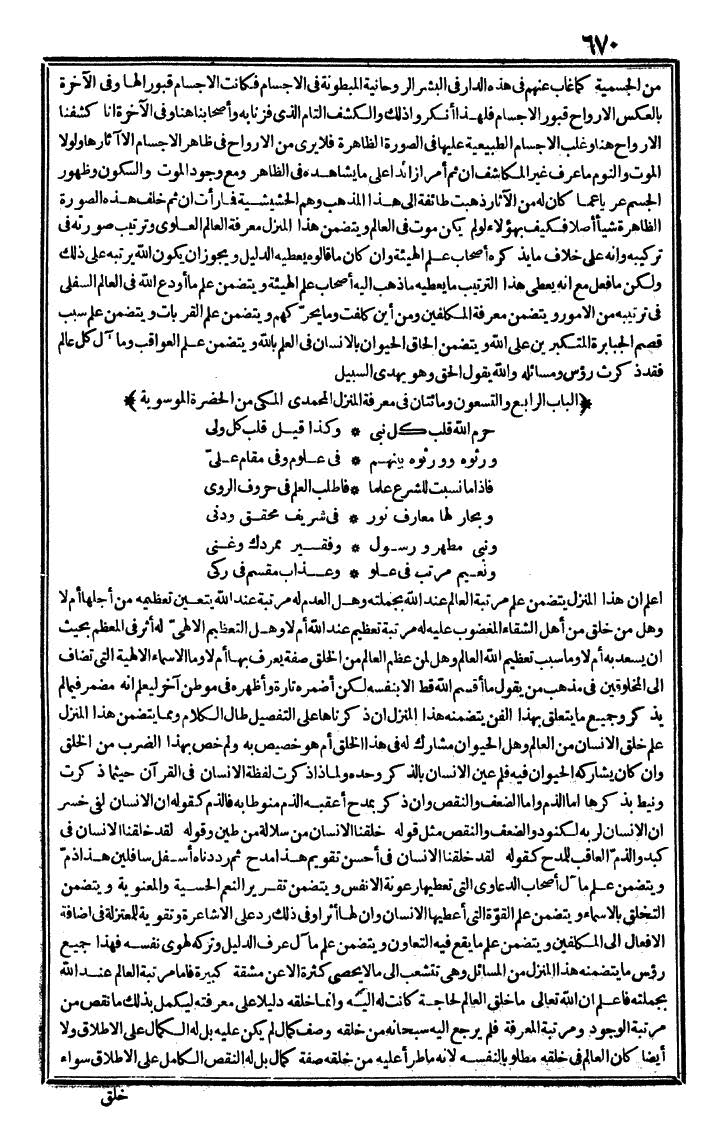 ٦٧٠
من الجسمية كما غاب عنهم فى هذه الدار فى البشر الروحانية المبطونة فى الاجسام فكانت الاجسام قبورا لها وفى الآخرة
بالعكس الارواح قبور الاجسام فلهذا أنكروا ذلك والكشف التام الذى فزنا به وأصحابنا هنا وفى الآخرة انا كشفنا
الارواح هنا وغلب الاجسام الطبيعية عليها فى الصورة الظاهرة فلا يرى من الارواح فى ظاهر الاجسام الا آثارها ولولا
الموت والنوم ما عرف غير المكاشف ان ثم أمرا زائدا على ما يشاهده فى الظاهر ومع وجود الموت والسكون وظهور
الجسم عريا عما كان له من الآثار ذهبت طائفة الى هذا المذهب وهم الحشيشية فما رأت ان ثم خلف هذه الصورة
الظاهرة شيأ أصلا فكيف بهؤلاء لو لم يكن موت فى العالم ويتضمن هذا المنزل معرفة العالم العلوى وترتيب صورته فى
تركيبه وانه على خلاف ما يذكره أصحاب علم الهيئة وان كان ما قالوه يعطيه الدليل ويجوز ان يكون الله يرتبه على ذلك
ولكن ما فعل مع انه يعطى هذا الترتيب ما يعطيه ما ذهب اليه أصحاب علم الهيئة ويتضمن علم ما أودع الله فى العالم السفلى
فى ترتيبه من الامور ويتضمن معرفة المكلفين ومن أين كلفت وما يحرّكهم ويتضمن علم القربات ويتضمن علم سبب
قصم الجبابرة المتكبرين على الله ويتضمن الحاق الحيوان بالانسان فى العلم بالله ويتضمن علم العواقب وما آل كل عالم
فقد ذكرت رؤس ومسائله والله يقول الحق وهو يهدى السبيل
﴿الباب الرابع والتسعون ومائتان فى معرفة المنزل المحمدى المكى من الحضرة الموسوية﴾
حرم الله قلب كل نبى * وكذا قيل قلب كل ولى
ورثوه وورثوه بينهم * فى علوم وفى مقام علىّ
فاذا ما نسبت للشرع علما * فاطلب العلم فى حروف الروى
وبحار لها معارف نور * فى شريف محقق ودنى
ونبى مطهر ورسول * وفقير ممردك وغنى
ونعيم مرتب فى علو * وعذاب مقسم فى ركى
اعلم ان هذا المنزل يتضمن علم مرتبة العالم عند الله بجملته وهل العدم له مرتبة عند الله يتعين تعظيمه من أجلها أم لا
وهل من خلق من أهل الشقاء المغضوب عليه له مرتبة تعظيم عند الله أم لا وهل التعظيم الالهىّ له أثر فى المعظم بحيث
ان يسعد به أم لا وما سبب تعظيم الله العالم وهل لمن عظم العالم من الخلق صفة يعرف بها أم لا وما الاسماء الالهية التى تضاف
الى المخلوقين فى مذهب من يقول ما أقسم الله قط الا بنفسه لكن أضمره تارة وأظهره فى موطن آخر ليعلم انه مضمر فيما لم
يذكر وجميع ما يتعلق بهذا الفن يتضمنه هذا المنزل ان ذكرناها على التفصيل طال الكلام ومما يتضمن هذا المنزل
علم خلق الانسان من العالم وهل الحيوان مشارك له فى هذا الخلق أم هو خصيص به ولم خص بهذا الضرب من الخلق
وان كان يشاركه الحيوان فيه فلم عين الانسان بالذكر وحده ولماذا ذكرت لفظة الانسان فى القرآن حيثما ذكرت
ونيط بذكرها اما الذم واما الضعف والنقص وان ذكر بمدح أعقبه الذم منوطا به فالذم كقوله ان الانسان لفى خسر
ان الانسان لربه لكنود والضعف والنقص مثل قوله خلقنا الانسان من سلالة من طين وقوله لقد خلقنا الانسان فى
كبد والذمّ العاقب للمدح كقوله لقد خلقنا الانسان فى أحسن تقويم هذا مدح ثم رددناه أسفل سافلين هذا ذمّ
ويتضمن علم ما آل أصحاب الدعاوى التى تعطيها رعونة الانفس ويتضمن تقرير النعم الحسية والمعنوية ويتضمن
التخلق بالاسماء ويتضمن علم القوّة التى أعطيها الانسان وان لها أثرا وفى ذلك رد على الاشاعرة وتقوية للمعتزلة فى اضافة
الافعال الى المكلفين ويتضمن علم ما يقع فيه التعاون ويتضمن علم ما آل عرف الدليل وتركه لهوى نفسه فهذا جميع
رؤس ما يتضمنه هذا المنزل من المسائل وهى تتشعب الى ما لا يحصى كثرة الا عن مشقة كبيرة فاما مرتبة العالم عند الله
بجملته فاعلم ان الله تعالى ما خلق العالم لحاجة كانت له اليه وانما خلقه دليلا على معرفته ليكمل بذلك ما نقص من
مرتبة الوجود ومرتبة المعرفة فلم يرجع اليه سبحانه من خلقه وصف كمال لم يكن عليه بل له الكمال على الاطلاق ولا
أيضا كان العالم فى خلقه مطلوبا لنفسه لانه ما طرأ عليه من خلقه صفة كمال بل له النقص الكامل على الاطلاق سواء
خلق